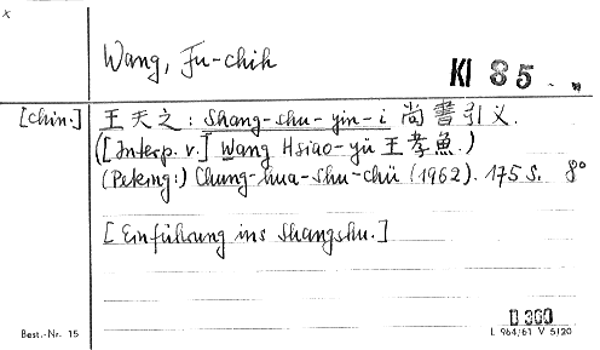 x
Wang, Fu-chih
KI 85.
[Chin.] 王天之: Shang-shu-yin-i 尚書引义.
([Interp. v.] Wang Hsiao-yü 王孝魚.)
(Peking:) Chung-hua-shu-chü (1962). 175 S. 8°
[Einführung ins Shangshu.]
D 360
Best.-Nr. 15
L 964/61 V 5120